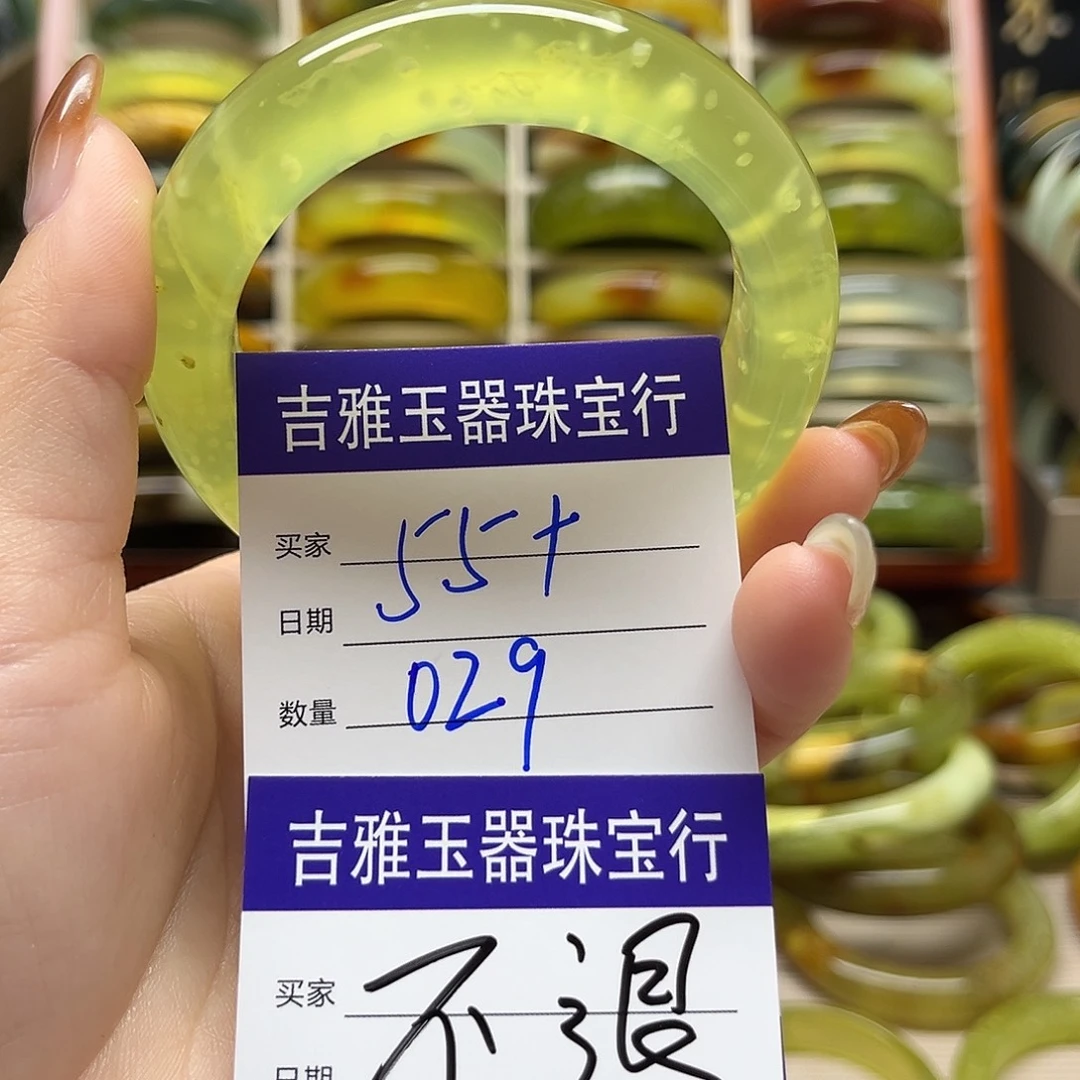 吉雅玉器珠宝行
买家 55+
日期
数量 029
吉雅玉器珠宝行
买家 不退
日期